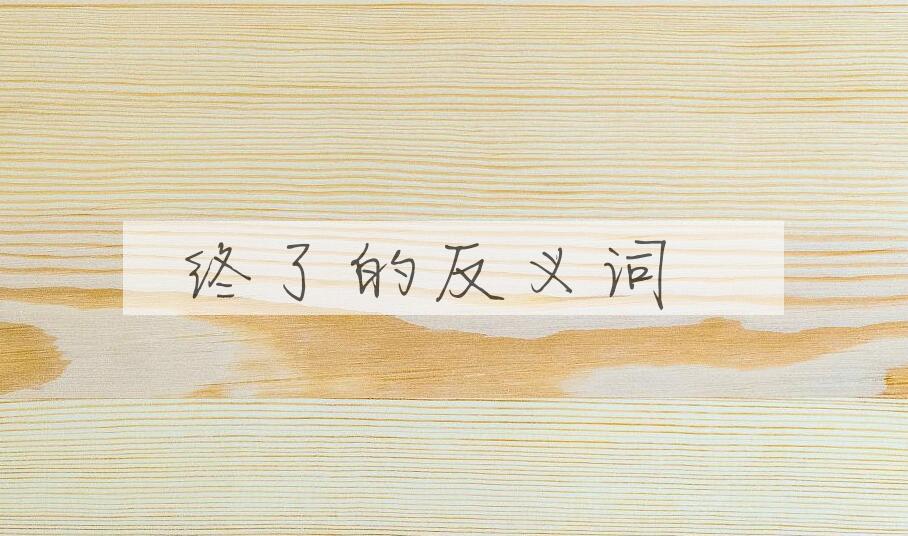 终了的反义词